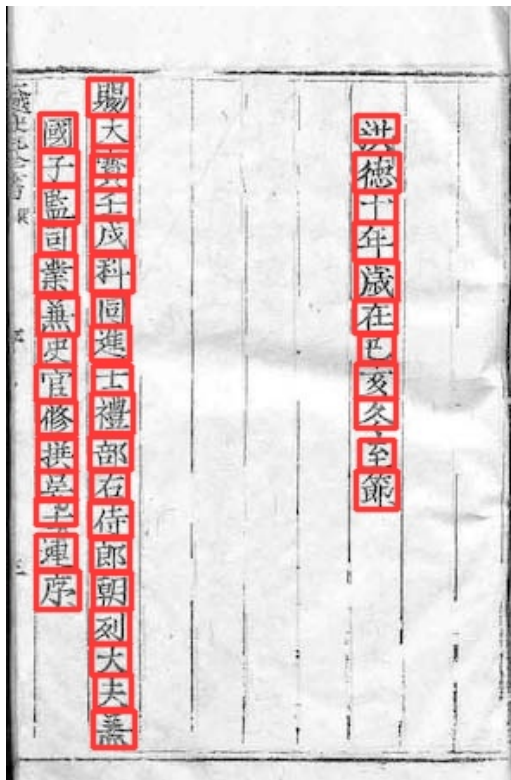 洪德十年歲在己亥冬至節
賜大寶壬戌科同進士禮部右侍郎朝列大夫兼
國子監司業兼史官修撰吳士連序
大越史記全書